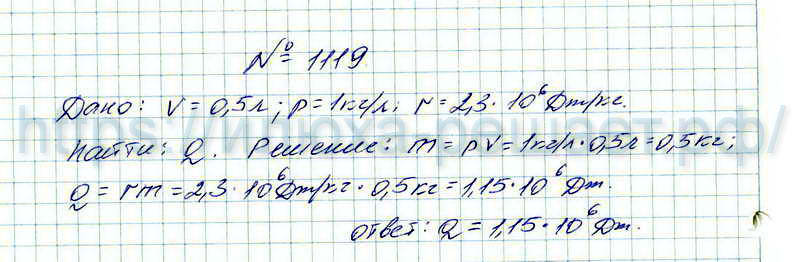 № 1119
Дано: V = 0,5л; ρ = 1кг/л; r = 2,3 · 10⁶ Дж/кг.
Найти: Q. Решение: m = ρV = 1кг/л · 0,5л = 0,5кг;
Q = rm = 2,3 · 10⁶ Дж/кг · 0,5кг = 1,15 · 10⁶ Дж.
Ответ: Q = 1,15 · 10⁶ Дж.